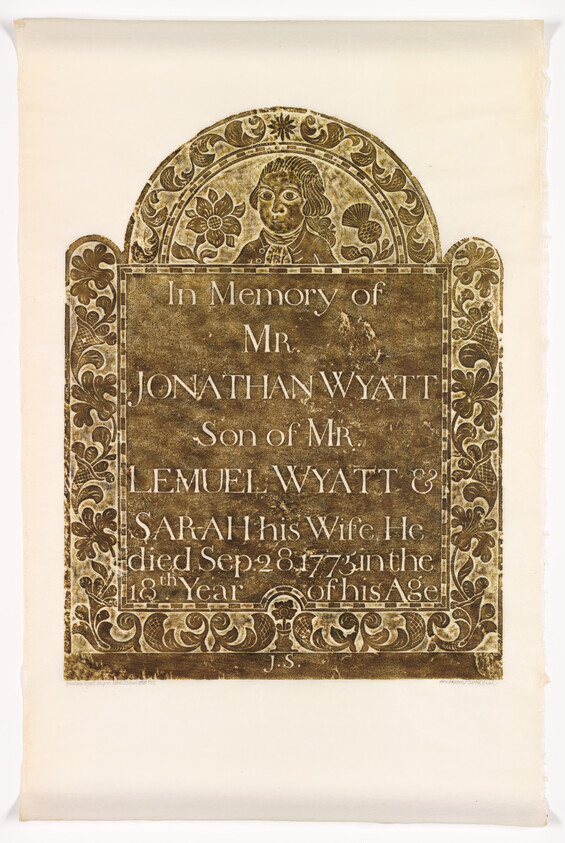 In Memory of
MR.
JONATHAN WYATT
Son of MR.
LEMUEL WYATT &
SARAH his Wife, He
died Sep. 28, 1775 in the
18th Year of his Age
J.S.